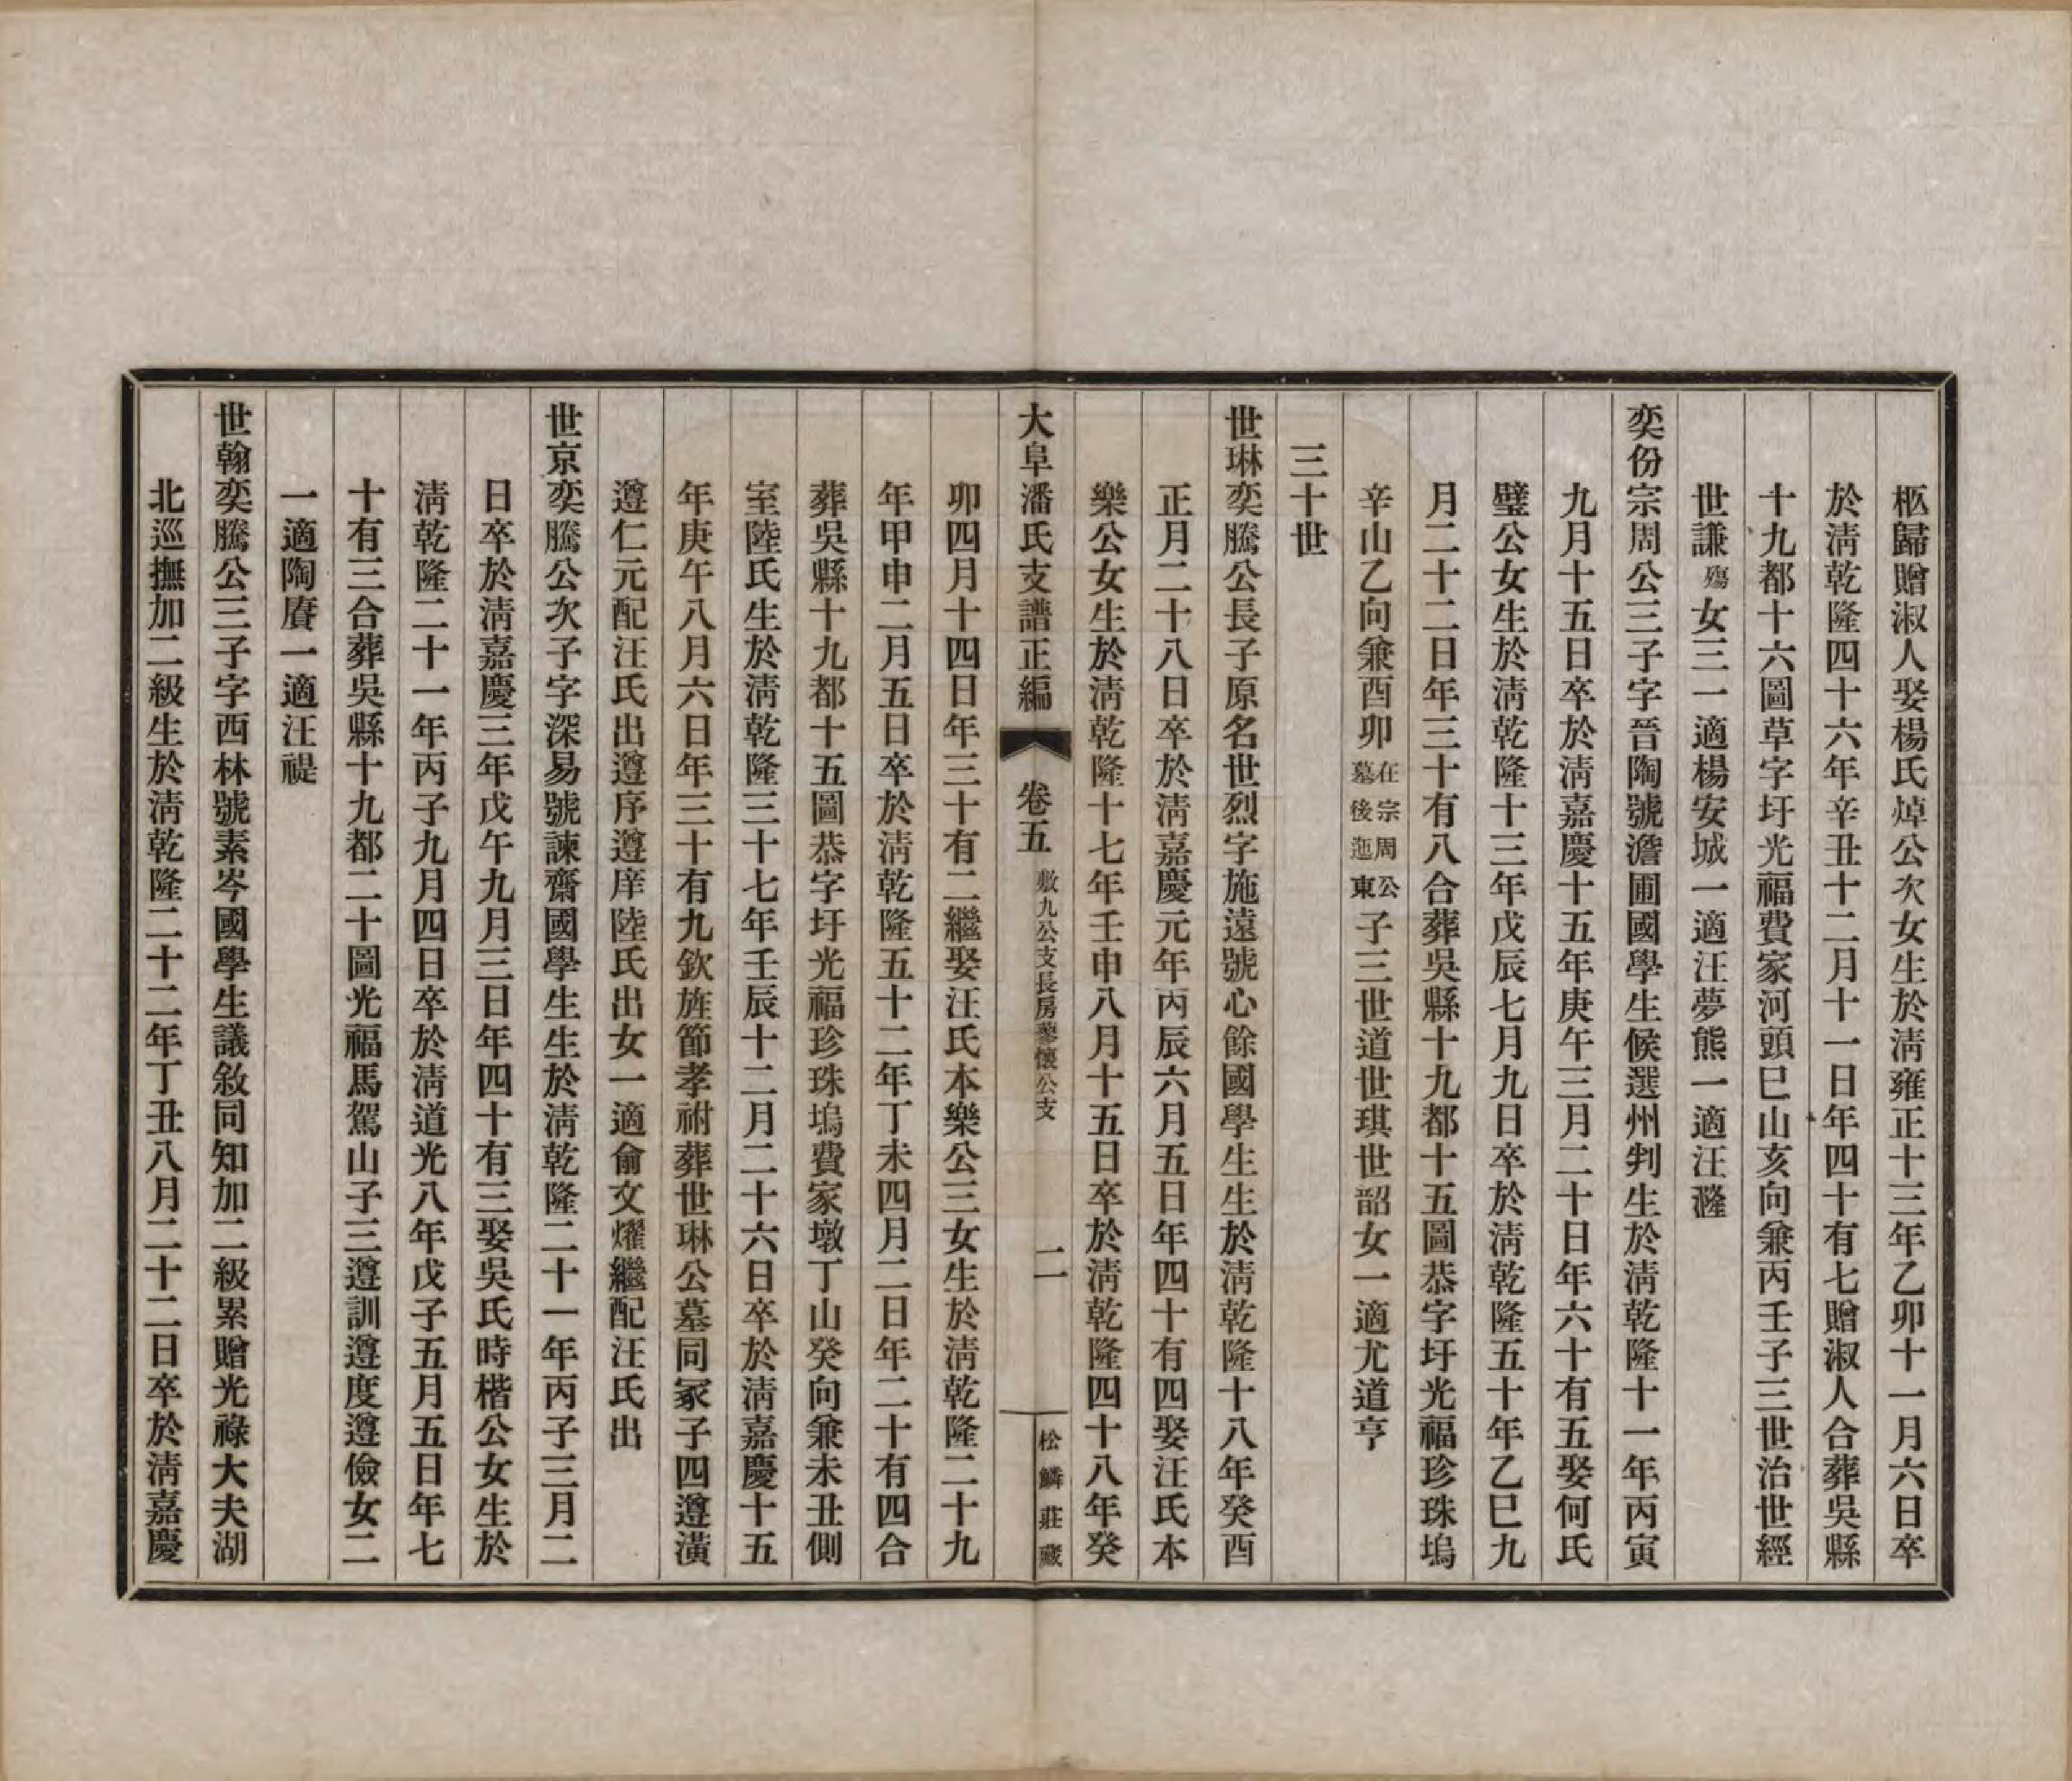 柩歸贈淑人娶楊氏焯公次女生於淸雍正十三年乙卯十一月六日卒
於淸乾隆四十六年辛丑十二月十一日年四十有七贈淑人合葬吳縣
十九都十六圖草字圩光福費家河頭巳山亥向兼丙壬子三世治世經
世謙殤女三一適楊安城一適汪夢熊一適汪
奕份宗周公三子字晉陶號澹圃國學生候選州判生於淸乾隆十一年丙寅
九月十五日卒於淸嘉慶十五年庚午三月二十日年六十有五娶何氏
璧公女生於淸乾隆十三年戊辰七月九日卒於淸乾隆五十年乙巳九
月二十二日年三十有八合葬吳縣十九都十五圖恭字圩光福珍珠塢
辛山乙向兼酉卯在宗周公墓後迤東子三世道世琪世韶女一適尤道亨
三十世
世琳奕騰公長子原名世烈字施遠號心餘國學生生於淸乾隆十八年癸酉
正月二十八日卒於淸嘉慶元年丙辰六月五日年四十有四娶汪氏本
樂公女生於淸乾隆十七年壬申八月十五日卒於淸乾隆四十八年癸
大阜潘氏支譜正編 卷五 敷九公支長房蓼懷公支 二 松鱗莊藏
卯四月十四日年三十有二繼娶汪氏本樂公三女生於淸乾隆二十九
年甲申二月五日卒於淸乾隆五十二年丁未四月二日年二十有四合
葬吳縣十九都十五圖恭字圩光福珍珠塢費家墩丁山癸向兼未丑側
室陸氏生於淸乾隆三十七年壬辰十二月二十六日卒於淸嘉慶十五
年庚午八月六日年三十有九欽旌節孝祔葬世琳公墓同冢子四遵潢
遵仁元配汪氏出遵序遵庠陸氏出女一適俞文燿繼配汪氏出
世京奕騰公次子字深易號諫齋國學生生於淸乾隆二十一年丙子三月二
日卒於淸嘉慶三年戊午九月三日年四十有三娶吳氏時楷公女生於
淸乾隆二十一年丙子九月四日卒於淸道光八年戊子五月五日年七
十有三合葬吳縣十九都二十圖光福馬駕山子三遵訓遵度遵儉女二
一適陶賡一適汪禔
世翰奕騰公三子字西林號素岑國學生議敘同知加二級累贈光祿大夫湖
北巡撫加二級生於淸乾隆二十二年丁丑八月二十二日卒於淸嘉慶